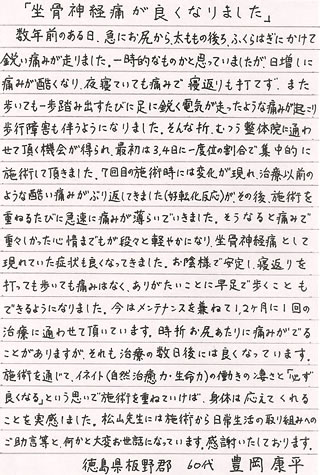 「坐骨神経痛が良くなりました」
数年前のある日、急にお尻から太ももの後ろ、ふくらはぎにかけて
鋭い痛みが走りました。一時的なものかと思っていましたが、日増しに
痛みが酷くなり、夜寝ていても痛みで寝返りも打てず、また
歩いても一歩踏み出すたびに足に鋭く電気が走ったような痛みが起こり
歩行障害も伴うようになりました。そんな折、むつう整体院に通わ
せて頂く機会が得られ、最初は3,4日に一度位の割合で集中的に
施術して頂きました。7回目の施術時には変化が現れ、治療以前の
ような酷い痛みがぶり返してきました(好転化反応)が、その後、施術を
重ねるたびに急速に痛みが薄らいでいきました。そうなると痛みで
重々しかった心情までもが段々と軽やかになり、坐骨神経痛として
現れていた症状も良くなってきました。お陰様で安定し、寝返りを
打っても歩いても痛みはなく、ありがたいことに早足で歩くことも
できるようになりました。今はメンテナンスを兼ねて1,2ヶ月に1回の
治療に通わせて頂いています。時折お尻あたりに痛みがでる
ことがありますが、それも治療の数日後には良くなっています。
施術を通じて、イネイト(自然治癒力・生命力)の働きの凄さと「必ず
良くなる」という思いで施術を重ねていけば、身体は応えてくれる
ことを実感しました。松山先生には施術から日常生活の取り組みへの
ご助言等と、何かと大変お世話になっています。感謝いたしております。
徳島県板野郡 60代 豊岡 康平